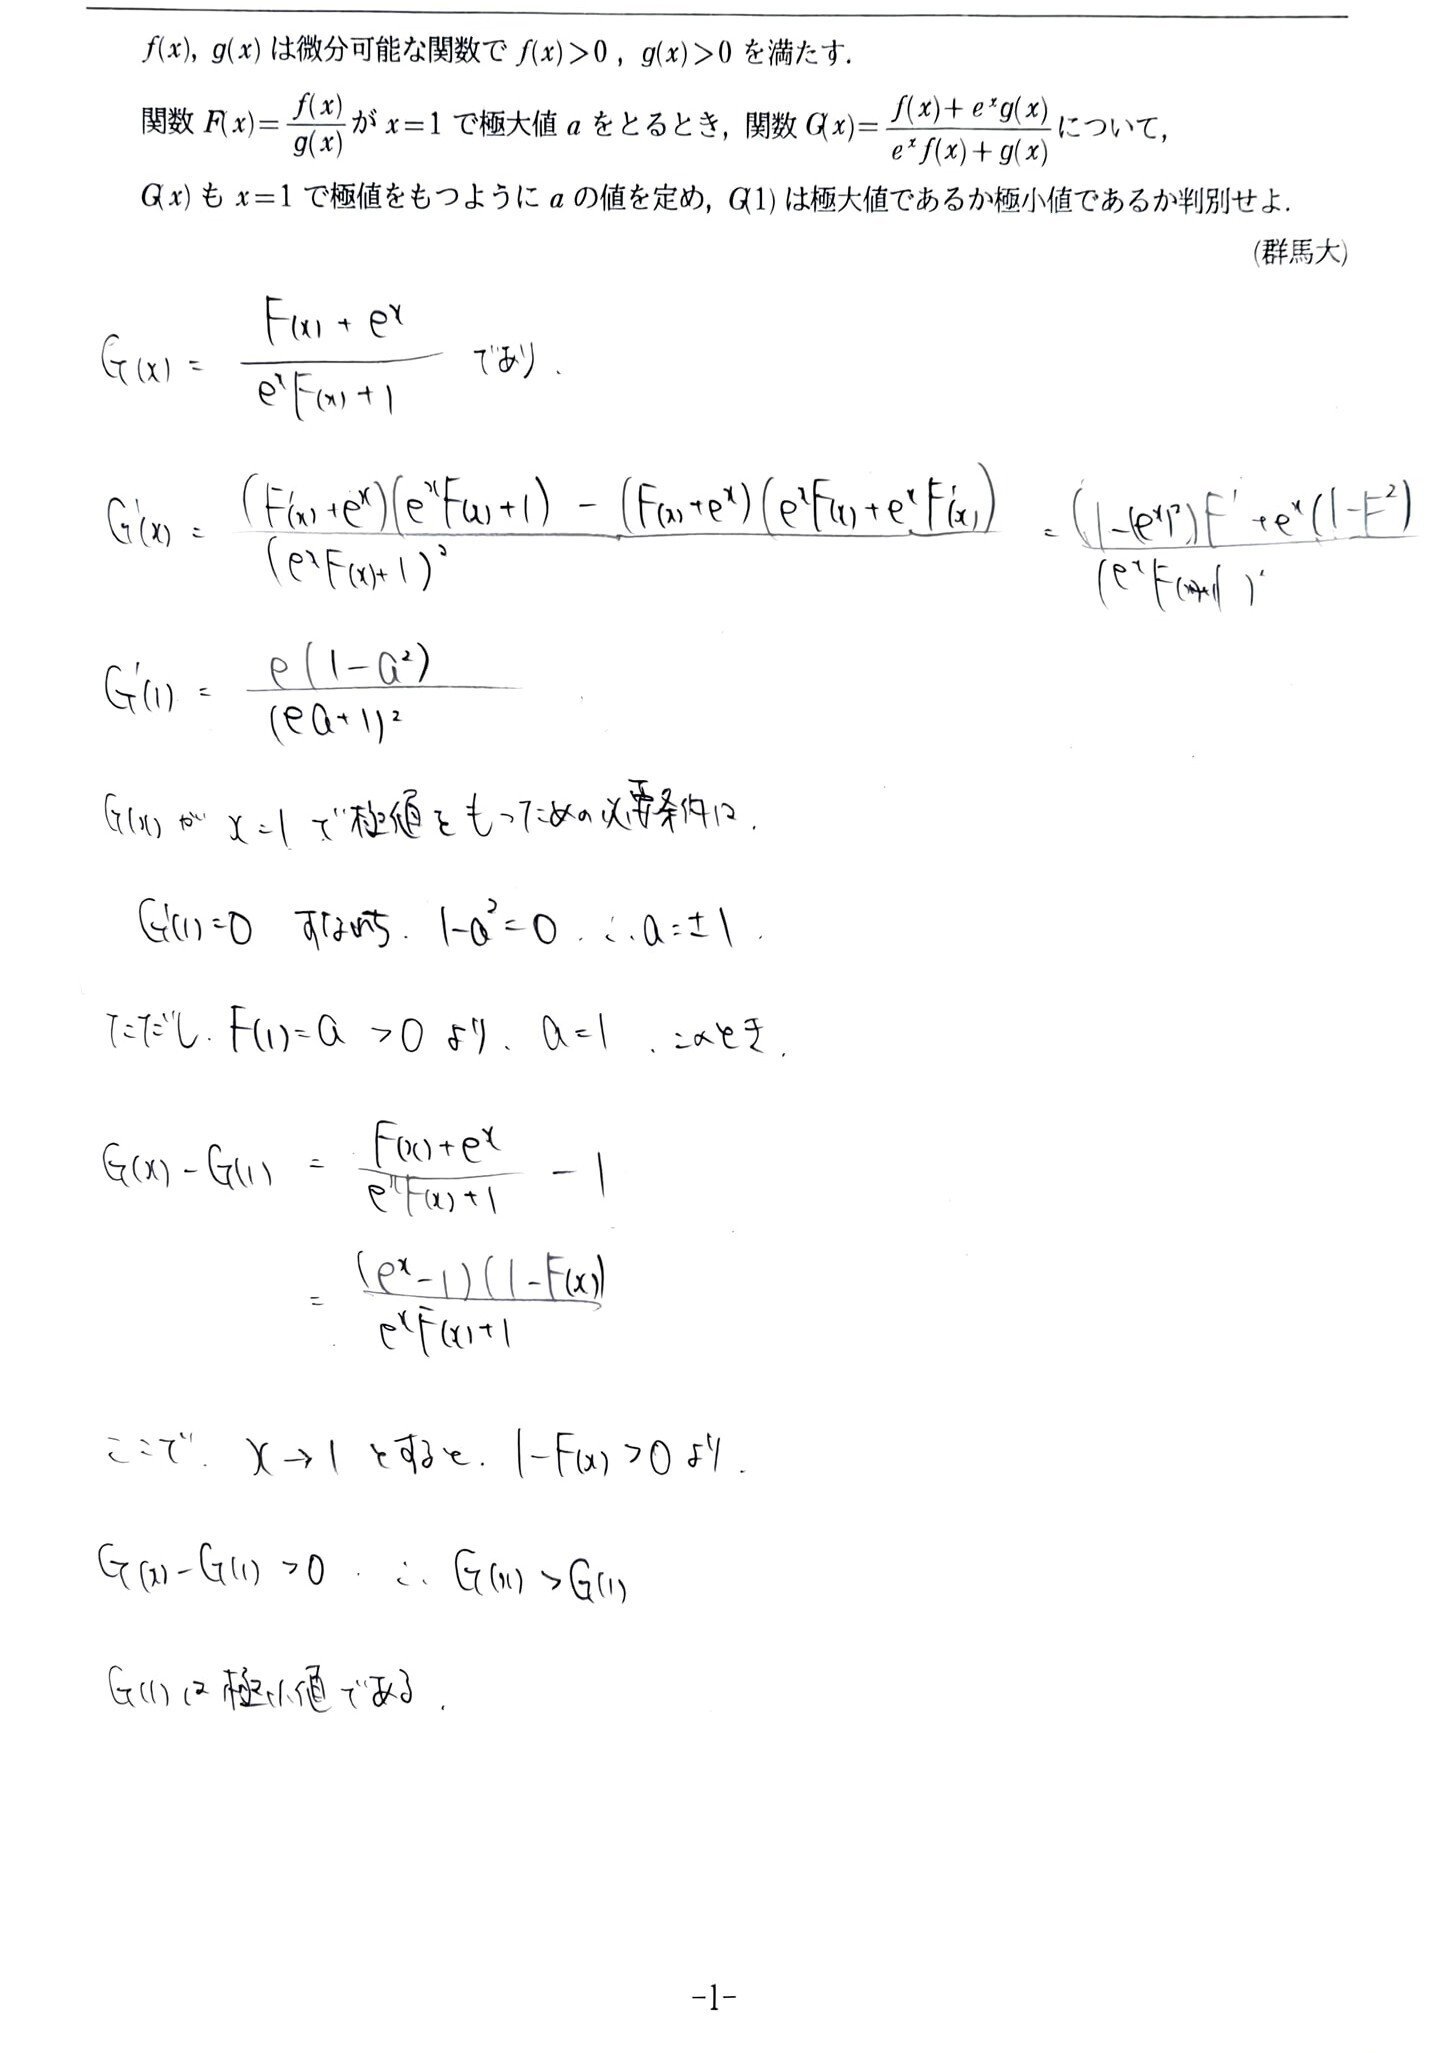 f(x), g(x) は微分可能な関数で f(x)>0 , g(x)>0 を満たす.
関数 F(x)=f(x)/g(x) が x=1 で極大値 a をとるとき, 関数 G(x)=(f(x)+e^x g(x))/(e^x f(x)+g(x)) について,
G(x) も x=1 で極値をもつように a の値を定め, G(1) は極大値であるか極小値であるか判別せよ.
(群馬大)
G(x) = (F(x) + e^x)/(e^x F(x) + 1) であり.
G'(x) = ((F'(x)+e^x)(e^x F(x)+1) - (F(x)+e^x)(e^x F(x)+e^x F'(x)))/(e^x F(x)+1)^2 = ((1-(e^x)^2)F' + e^x(1-F^2))/(e^x F(x)+1)^2
G'(1) = e(1-a^2)/(ea+1)^2
G(x) が x=1 で極値をもつための必要条件は.
G'(1)=0 すなわち. 1-a^2=0. ∴a=±1.
ただし. F(1)=a >0 より. a=1 . このとき.
G(x)-G(1) = (F(x)+e^x)/(e^x F(x)+1) - 1
= (e^x-1)(1-F(x))/(e^x F(x)+1)
ここで. x→1 とすると. 1-F(x)>0 より.
G(x)-G(1)>0 . ∴ G(x)>G(1)
G(1)は極小値である.
-1-